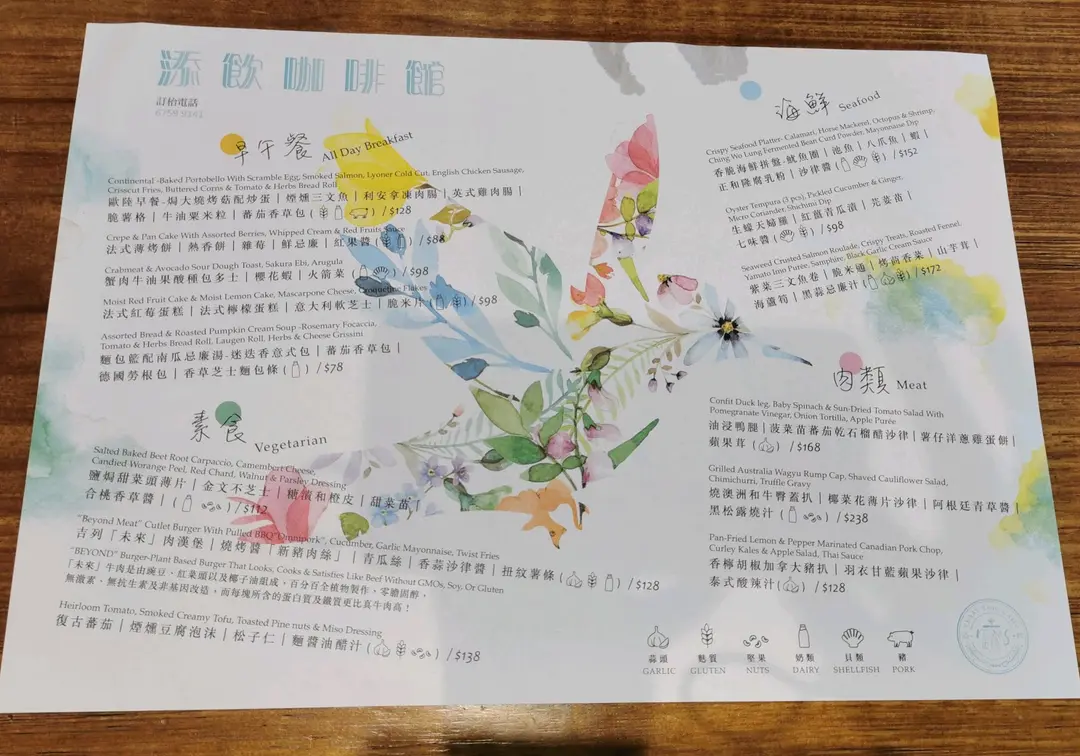 添飲咖啡館
訂枱電話
早午餐 All Day Breakfast
Continental -Baked Portobello With Scramble Egg, Smoked Salmon, Lyoner Cold Cut, English Chicken Sausage,
Crisscut Fries, Buttered Corns & Tomato & Herbs Bread Roll
歐陸早餐-焗大燒烤菇配炒蛋 | 煙燻三文魚 | 利安拿凍肉腸 | 英式雞肉腸 |
脆薯格 | 牛油粟米粒 | 蕃茄香草包 ( ) / $128
Crepe & Pan Cake With Assorted Berries, Whipped Cream & Red Fruits Sauce
法式薄烤餅 | 熱香餅 | 雜莓 | 鮮忌廉 | 紅果醬 ( ) / $88
Crabmeat & Avocado Sour Dough Toast, Sakura Ebi, Arugula
蟹肉牛油果酸種包多士 | 櫻花蝦 | 火箭菜 ( ) / $98
Moist Red Fruit Cake & Moist Lemon Cake, Mascarpone Cheese, Croquetine Flakes
法式紅莓蛋糕 | 法式檸檬蛋糕 | 意大利軟芝士 | 脆米片 ( ) / $98
Assorted Bread & Roasted Pumpkin Cream Soup -Rosemary Focaccia,
Tomato & Herbs Bread Roll, Laugen Roll, Herbs & Cheese Grissini
麵包籃配南瓜忌廉湯-迷迭香意式包 | 蕃茄香草包 |
德國勞根包 | 香草芝士麵包條 ( ) / $78
素食 Vegetarian
Salted Baked Beet Root Carpaccio, Camembert Cheese,
Candied Worange Peel, Red Chard, Walnut & Parsley Dressing
鹽焗甜菜頭薄片 | 金文不芝士 | 糖漬和橙皮 | 甜菜苗 |
合桃香草醬 | ( ) / $112
"Beyond Meat" Cutlet Burger With Pulled BBQ "Omnipork", Cucumber, Garlic Mayonnaise, Twist Fries
吉列「未來」肉漢堡 | 燒烤醬「新豬肉絲」 | 青瓜絲 | 香蒜沙律醬 | 扭紋薯條 ( ) / $128
"BEYOND" Burger-Plant Based Burger That Looks, Cooks & Satisfies Like Beef Without GMOs, Soy, Or Gluten
「未來」牛肉是由豌豆、紅菜頭以及椰子油組成，百分百全植物製作，零膽固醇，
無激素，無抗生素及非基因改造，而每塊所含的蛋白質及鐵質更比真牛肉高！
Heirloom Tomato, Smoked Creamy Tofu, Toasted Pine nuts & Miso Dressing
復古蕃茄 | 煙燻豆腐泡沫 | 松子仁 | 麵醬油醋汁 ( ) / $138
海鮮 Seafood
Crispy Seafood Platter- Calamari, Horse Mackerel, Octopus & Shrimp,
Ching Wo Lung Fermented Bean Curd Powder, Mayonnaise Dip
香脆海鮮拼盤-魷魚圈 | 池魚 | 八爪魚 | 蝦 |
正和隆腐乳粉 | 沙律醬 ( ) / $152
Oyster Tempura (3 pcs), Pickled Cucumber & Ginger,
Micro Coriander, Shichimi Dip
生蠔天婦羅 | 紅薑青瓜漬 | 芫荽苗 |
七味醬 ( ) / $98
Seaweed Crusted Salmon Roulade, Crispy Treats, Roasted Fennel,
Yamato Inn Purée, Samphire, Black Garlic Cream Sauce
紫菜三文魚卷 | 脆米通 | 烤茴香菜 | 山芋茸 |
海蘆筍 | 黑蒜忌廉汁 ( ) / $172
肉類 Meat
Confit Duck leg, Baby Spinach & Sun-Dried Tomato Salad With
Pomegranate Vinegar, Onion Tortilla, Apple Purée
油浸鴨腿 | 菠菜苗蕃茄乾石榴醋沙律 | 薯仔洋蔥雞蛋餅 |
蘋果茸 ( ) / $168
Grilled Australia Wagyu Rump Cap, Shaved Cauliflower Salad,
Chimichurri, Truffle Gravy
燒澳洲和牛臀蓋扒 | 椰菜花薄片沙律 | 阿根廷青草醬 |
黑松露燒汁 ( ) / $238
Pan-Fried Lemon & Pepper Marinated Canadian Pork Chop,
Curley Kales & Apple Salad, Thai Sauce
香檸胡椒加拿大豬扒 | 羽衣甘藍蘋果沙律 |
泰式酸辣汁 ( ) / $128
蒜頭 麩質 堅果 奶類 貝類 豬
GARLIC GLUTEN NUTS DAIRY SHELLFISH PORK